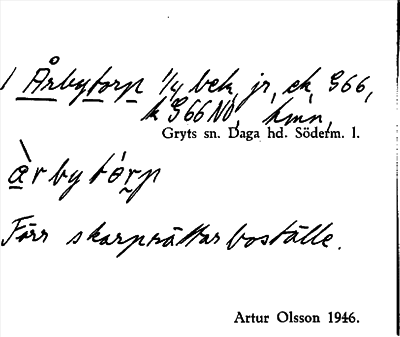 1 Årbytorp 1/4 bek, jr, ek, G66,
k G66NO, hmn,
Gryts sn. Daga hd. Söderm. l.
àrbytórp
Förr skarprättarboställe.
Artur Olsson 1946.